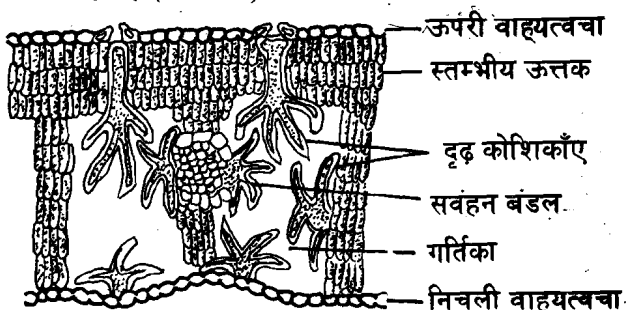 ऊपरी वाह्यत्वचा
स्तम्भीय ऊत्तक
दृढ़ कोशिकाँए
सवंहन बंडल
गर्तिका
निचली वाहयत्वचा